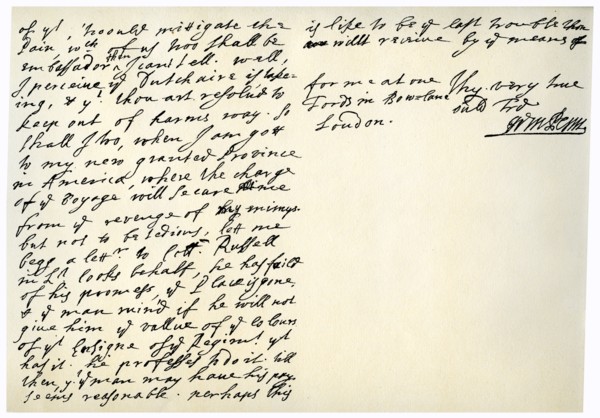 of yt, would mittigate the
Pain, wch of us two shall be
embassador then I cant tell. wall,
I perceive ye Dutchaire is takeing,
& yt thou art resolv'd to
keep out of harms way. So
shall I two, when I am gott
to my new granted Province
in America, where the charge
of ye voyage will secure me
from ye revenge of my
but not to be tedious, lett me
begg a lettr to Russell
in behalf, he has faild
of his promess, ye Place is gone,
& ye man mind if he will not
give him ye vallue of ye Colours
of yt Ensigne of ye Regimt yt
has it. he professes to do it. till
then, yt ye man may have his pay
seems reasonable. perhaps this
is like to be ye last trouble thou
willt receive by ye means of
Thy very true
for me at one
Fords in Bow-lane
London.
Frd
Wm Penn